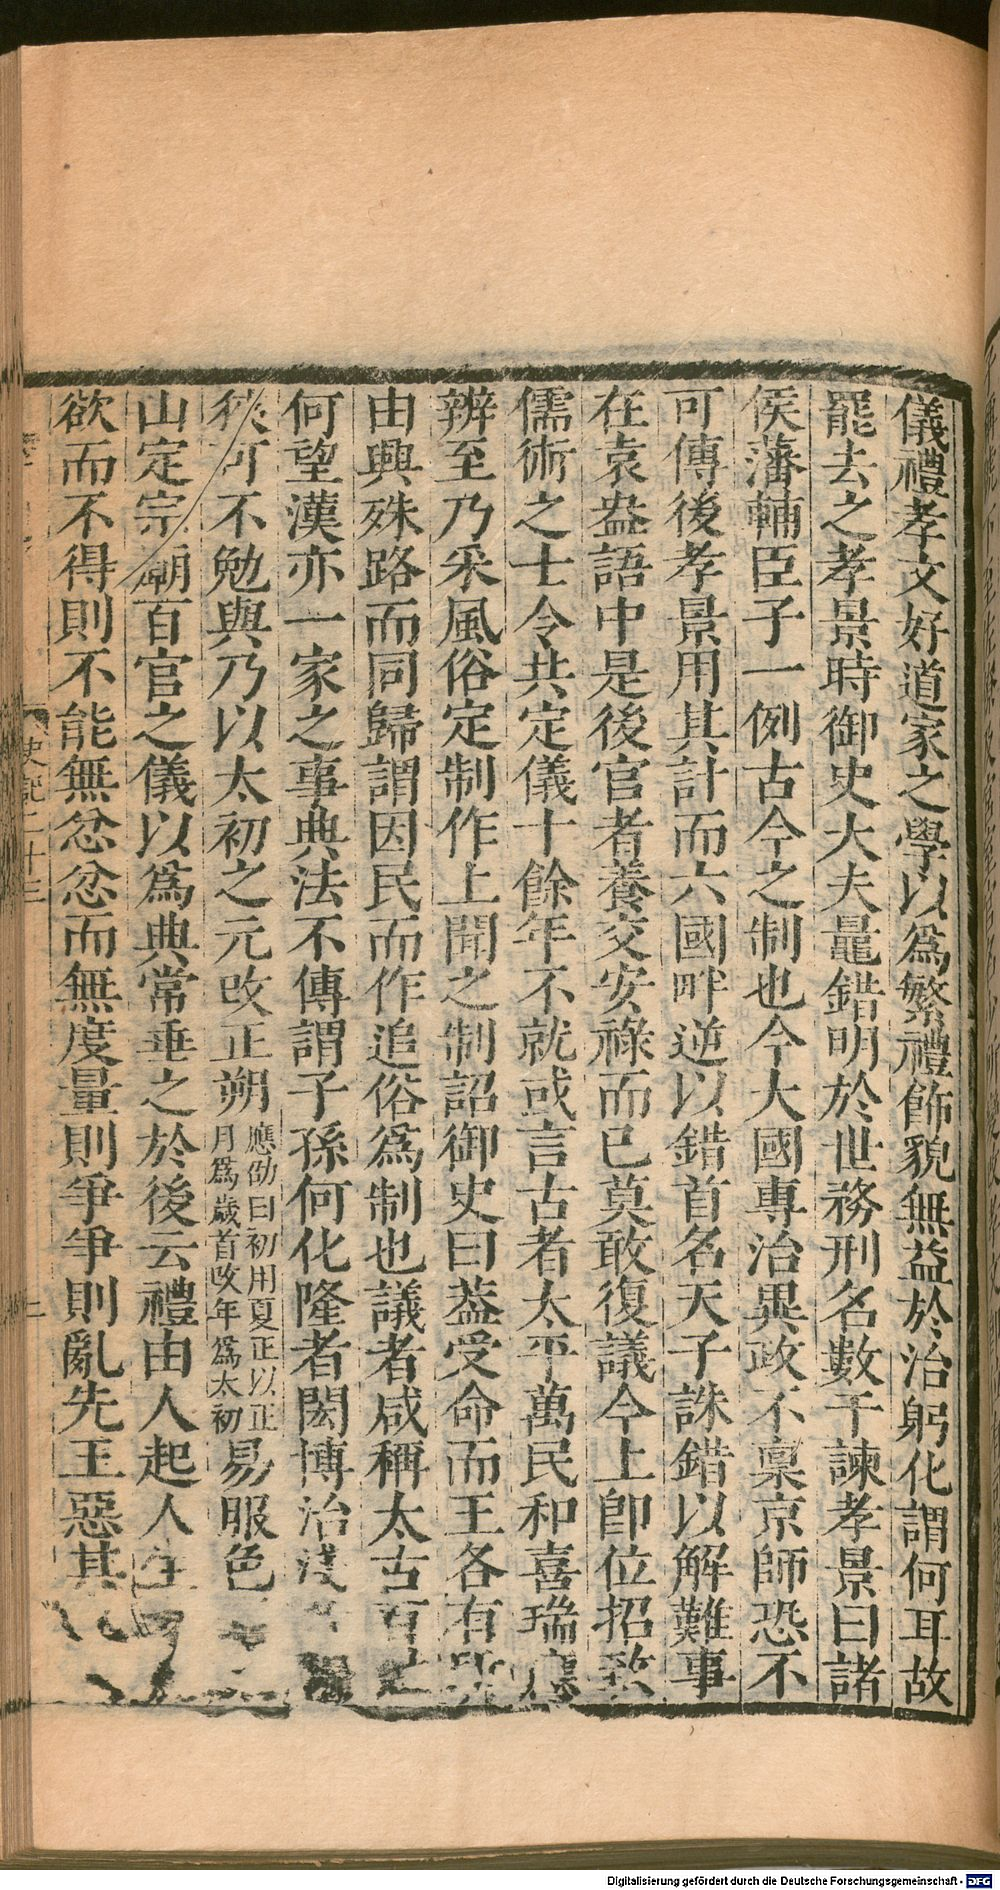 儀禮孝文好道家之學以爲繁禮飾貌無益於治躬化謂何耳故
罷去之孝景時御史大夫鼂錯明於世務刑名數干諫孝景曰諸
侯藩輔臣子一例古今之制也今大國專治異政不稟京師恐不
可傳後孝景用其計而六國畔逆以錯首名天子誅錯以解難事
在袁盎語中是後官者養交安祿而已莫敢復議今上卽位招致
儒術之士令共定儀十餘年不就或言古者太平萬民和喜瑞應
辨至乃采風俗定制作上聞之制詔御史曰葢受命而王各有所
由興殊路而同歸謂因民而作追俗爲制也議者咸稱太古百姓
何望漢亦一家之事典法不傳謂子孫何化隆者閎博治淺
可不勉與乃以太初之元改正朔
應劭曰初用夏正以正
月爲歲首改年爲太初
易服色
山定宗廟百官之儀以爲典常垂之於後云禮由人起人生
欲而不得則不能無忿忿而無度量則爭爭則亂先王惡其
史記二十三
二
Digitalisierung gefördert durch die Deutsche Forschungsgemeinschaft - DFG